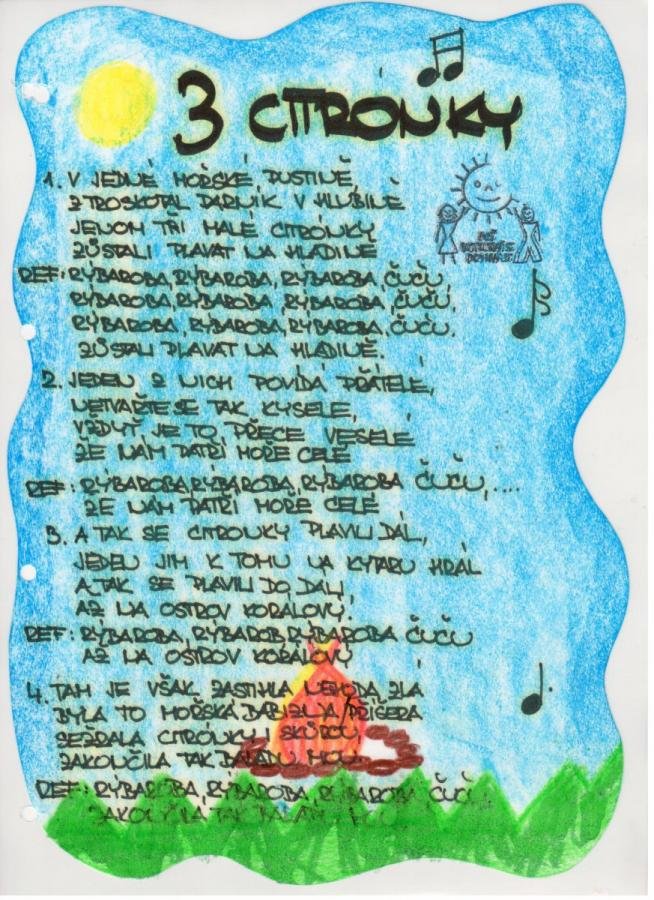 3 CITRÓNKY
1. V JEDNÉ MOŘSKÉ PUSTINĚ,
ZTROSKOTAL PARNÍK V HLUBINĚ
JENOM TŘI MALÉ CITRÓNKY
ZŮSTALI PLAVAT NA HLADINĚ
REF: RÝBAROBA, RÝBAROBA, RÝBAROBA, ČUČU,
RÝBAROBA, RÝBAROBA, RÝBAROBA, ČUČU,
RÝBAROBA, RÝBAROBA, RÝBAROBA, ČUČU.
ZŮSTALI PLAVAT NA HLADINĚ.
2. JEDEN Z NICH POVÍDÁ PŘÁTELÉ,
NETVAŘTE SE TAK KYSELE,
VŽDYŤ JE TO PŘECE VESELÉ
ŽE NÁM PATŘÍ MOŘE CELÉ
REF: RÝBAROBA, RÝBAROBA, RÝBAROBA ČUČU, ....
ŽE NÁM PATŘÍ MOŘE CELÉ
3. A TAK SE CITRONKY PLAVILI DÁL,
JEDEN JIM K TOMU NA KYTARU HRÁL
A TAK SE PLAVILI DO DÁLI
AŽ NA OSTROV KORÁLOVÝ.
REF: RÝBAROBA, RÝBAROB RÝBAROBA ČUČU
AŽ NA OSTROV KORÁLOVÝ
4. TAM JE VŠAK ZASTIHLA NEHODA ZLÁ
BYLA TO MOŘSKÁ PŘÍŠERA
SEŽRALA CITRÓNKY I S KŮROU
ZAKONČILA TAK BALADU MOU
REF: RÝBAROBA, RÝBAROBA, RÝBAROBA, ČUČU,
ZAKONČILA TAK